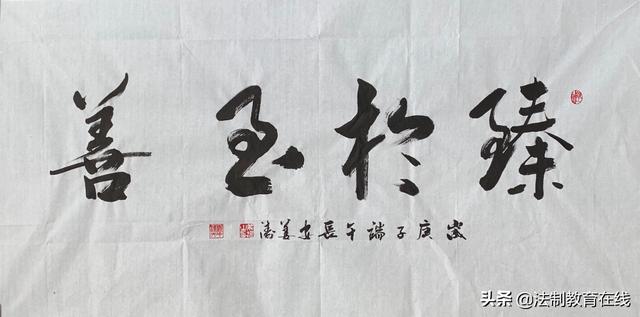 臻於至善
歲庚子端午長安姜濤
头条 @法制教育在线